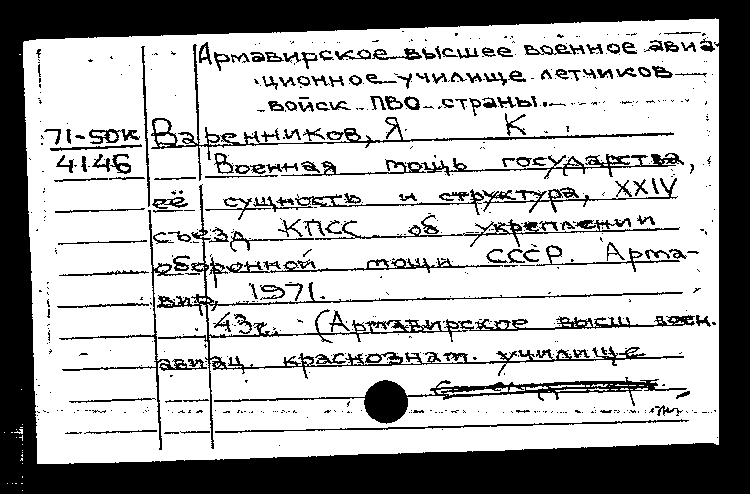 Армавирское высшее военное авиа-
ционное училище летчиков
войск ПВО страны.
71-50к Варенников, Я К.
4146 Военная мощь государства,
её сущность и структура, XXIV
съезд КПСС об укреплении
оборонной мощи СССР. Арма-
вир, 1971.
43с. (Армавирское высш воен.
авиац. краснознам. училище